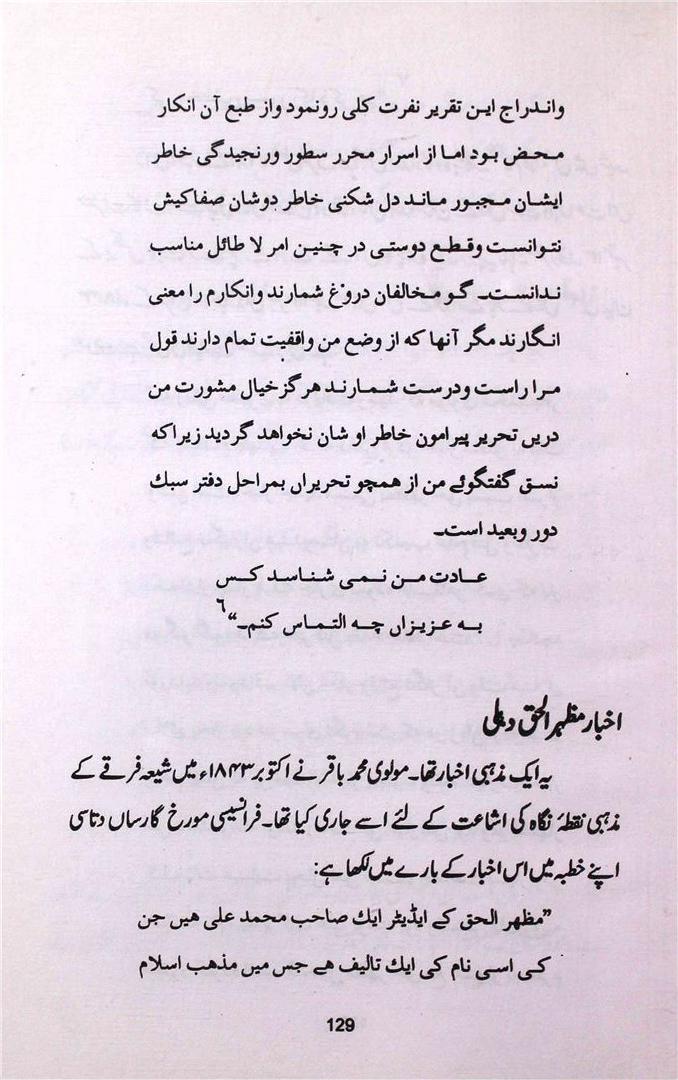 واندراج این تقریر نفرت کلی رونمود واز طبع آن انکار
محض بود اما از اسرار محرر سطور ورنجیدگی خاطر
ایشان مجبور ماند دل شکنی خاطر دوشان صفاکیش
نتوانست وقطع دوستی در چنین امر لا طائل مناسب
ندانست۔ گو مخالفان دروغ شمارند وانکارم را معنی
انگارند مگر آنها که از وضع من واقفیت تمام دارند قول
مرا راست ودرست شمارند هرگز خیال مشورت من
دریں تحریر پیرامون خاطر او شان نخواهد گردید زیراکه
نسق گفتگوئے من از همچو تحریراں بمراحل دفتر سبك
دور وبعید است۔
عادت من نمی شناسد کس
به عزیزاں چه التماس کنم۔“۶
اخبار مظہر الحق دہلی
یہ ایک مذہبی اخبار تھا۔ مولوی محمد باقر نے اکتوبر ۱۸۴۳ء میں شیعہ فرقے کے
مذہبی نقطۂ نگاہ کی اشاعت کے لئے اسے جاری کیا تھا۔ فرانسیسی مورخ گارساں دتاسی
اپنے خطبہ میں اس اخبار کے بارے میں لکھا ہے:
”مظهر الحق کے ایڈیٹر ایك صاحب محمد علی هیں جن
کی اسی نام کی ایك تالیف هے جس میں مذهب اسلام
129